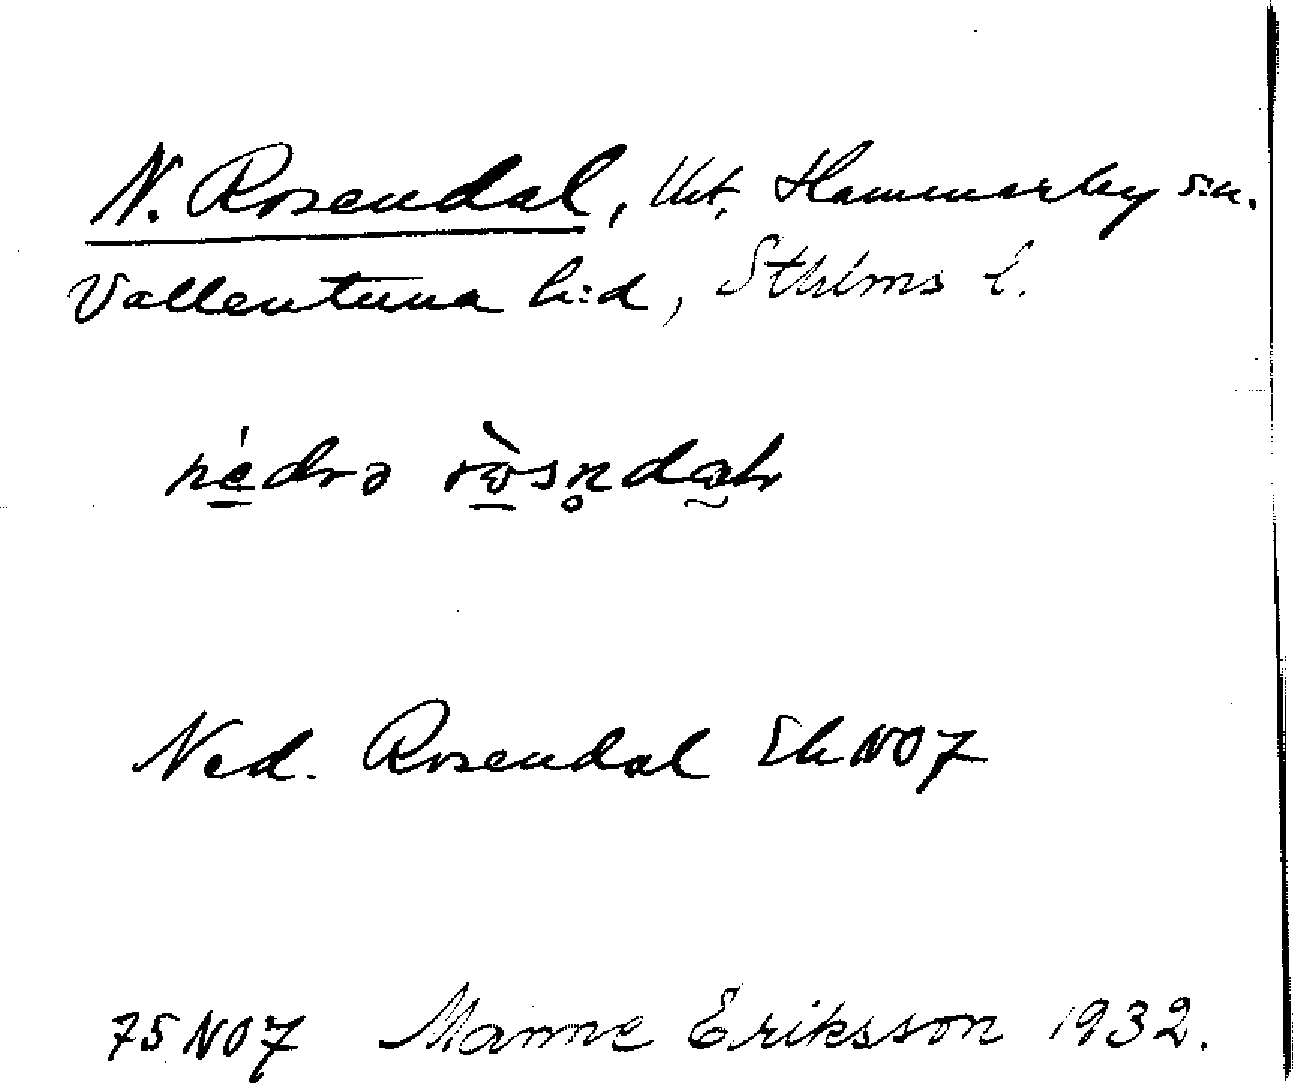 N. Rosendal, Ut. Hammarby s:n.
Vallentuna h:d, Sthlms l.
nedrə rosn̥dal
Ned. Rosendal Ek NO7
75 NO7 Manne Eriksson 1932.